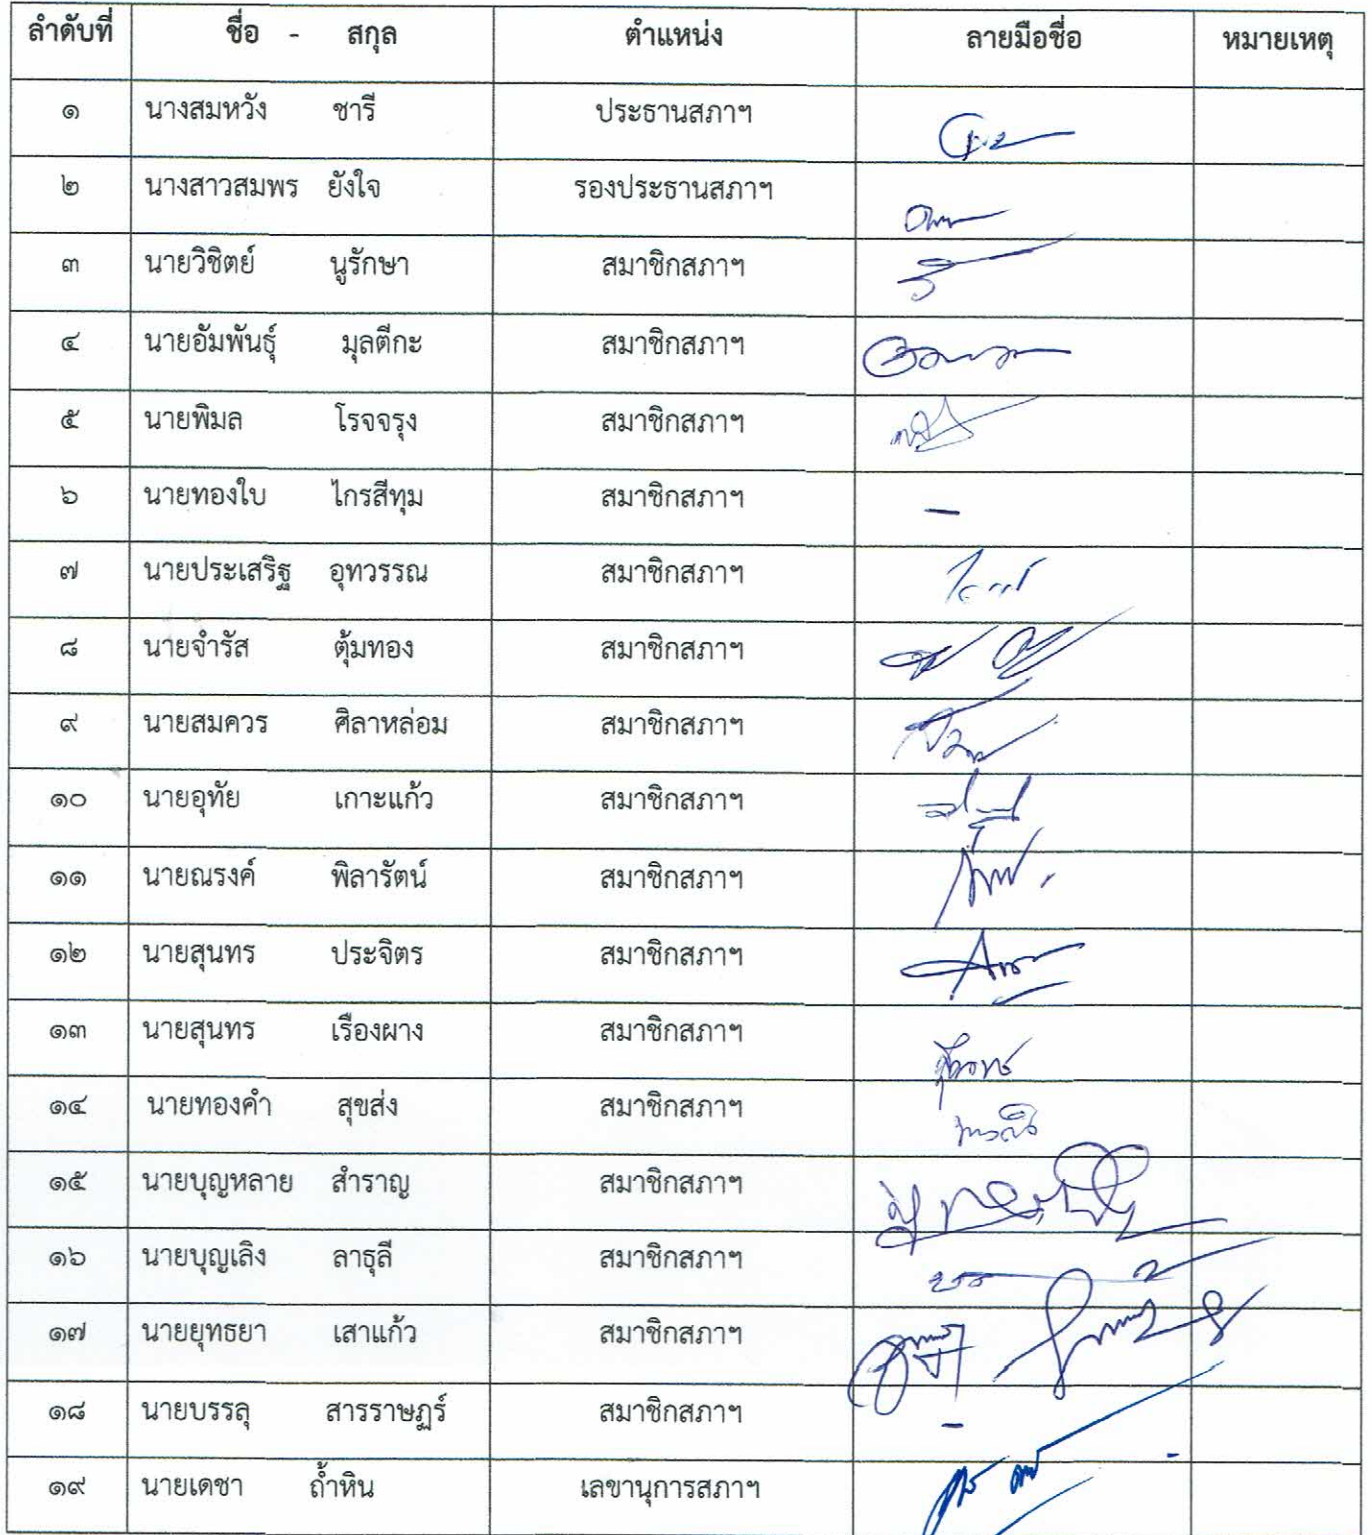 ลำดับที่ ชื่อ - สกุล ตำแหน่ง ลายมือชื่อ หมายเหตุ
๑ นางสมหวัง ชารี ประธานสภาฯ
๒ นางสาวสมพร ยังใจ รองประธานสภาฯ
๓ นายวิชิตย์ นูรักษา สมาชิกสภาฯ
๔ นายอัมพันธุ์ มุลตีกะ สมาชิกสภาฯ
๕ นายพิมล โรจจรุง สมาชิกสภาฯ
๖ นายทองใบ ไกรสีทุม สมาชิกสภาฯ -
๗ นายประเสริฐ อุทวรรณ สมาชิกสภาฯ
๘ นายจำรัส ตุ้มทอง สมาชิกสภาฯ
๙ นายสมควร ศิลาหล่อม สมาชิกสภาฯ
๑๐ นายอุทัย เกาะแก้ว สมาชิกสภาฯ
๑๑ นายณรงค์ พิลารัตน์ สมาชิกสภาฯ
๑๒ นายสุนทร ประจิตร สมาชิกสภาฯ
๑๓ นายสุนทร เรืองผาง สมาชิกสภาฯ
๑๔ นายทองคำ สุขส่ง สมาชิกสภาฯ
๑๕ นายบุญหลาย สำราญ สมาชิกสภาฯ
๑๖ นายบุญเลิง ลาธุลี สมาชิกสภาฯ
๑๗ นายยุทธยา เสาแก้ว สมาชิกสภาฯ
๑๘ นายบรรลุ สารราษฏร์ สมาชิกสภาฯ - -
๑๙ นายเดชา ถ้ำหิน เลขานุการสภาฯ